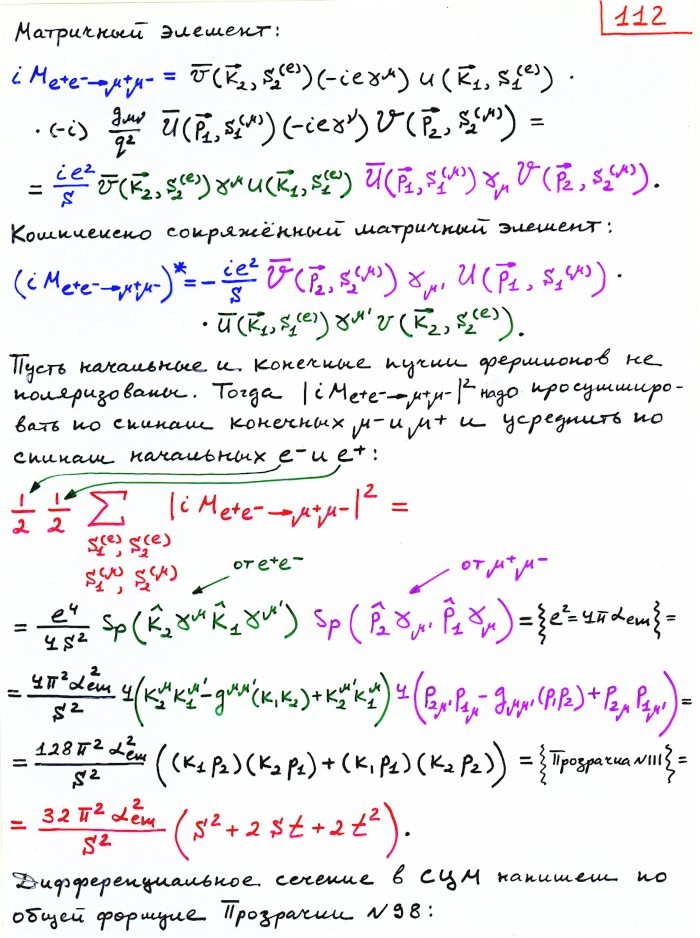 112
Матричный элемент:
i M_{e+e-→μ+μ-} = v̄(k⃗₂, s₂^{(e)}) (-ieγ^μ) u(k⃗₁, s₁^{(e)}) ·
· (-i) g_{μν}/q² ū(p⃗₁, s₁^{(μ)}) (-ieγ^ν) v(p⃗₂, s₂^{(μ)}) =
= ie²/s v̄(k⃗₂, s₂^{(e)}) γ^μ u(k⃗₁, s₁^{(e)}) ū(p⃗₁, s₁^{(μ)}) γ_μ v(p⃗₂, s₂^{(μ)}).
Комплексно сопряжённый матричный элемент:
(i M_{e+e-→μ+μ-})* = - ie²/s v̄(p⃗₂, s₂^{(μ)}) γ_{μ'} u(p⃗₁, s₁^{(μ)}) ·
· ū(k⃗₁, s₁^{(e)}) γ^{μ'} v(k⃗₂, s₂^{(e)}).
Пусть начальные и конечные пучки фермионов не
поляризованы. Тогда |i M_{e+e-→μ+μ-}|² надо просуммиро-
вать по спинам конечных μ- и μ+ и усреднить по
спинам начальных e- и e+:
1/2 1/2 Σ |i M_{e+e-→μ+μ-}|² =
s₁^{(e)}, s₂^{(e)}
s₁^{(μ)}, s₂^{(μ)}
от e+e- от μ+μ-
= e⁴/4s² Sp(k̂₂ γ^μ k̂₁ γ^{μ'}) Sp(p̂₂ γ_{μ'} p̂₁ γ_μ) = {e² = 4π α_em} =
= 4π²α²_em/s² 4(k₂^μ k₁^{μ'} - g^{μμ'}(k₁k₂) + k₂^{μ'} k₁^μ) 4(p_{2μ'} p_{1μ} - g_{μμ'}(p₁p₂) + p_{2μ} p_{1μ'}) =
= 128π² α²_em/s² ((k₁p₂)(k₂p₁) + (k₁p₁)(k₂p₂)) = {Прозрачка N111} =
= 32π² α²_em/s² (s² + 2st + 2t²).
Дифференциальное сечение в СЦМ напишем по
общей формуле Прозрачки N98: